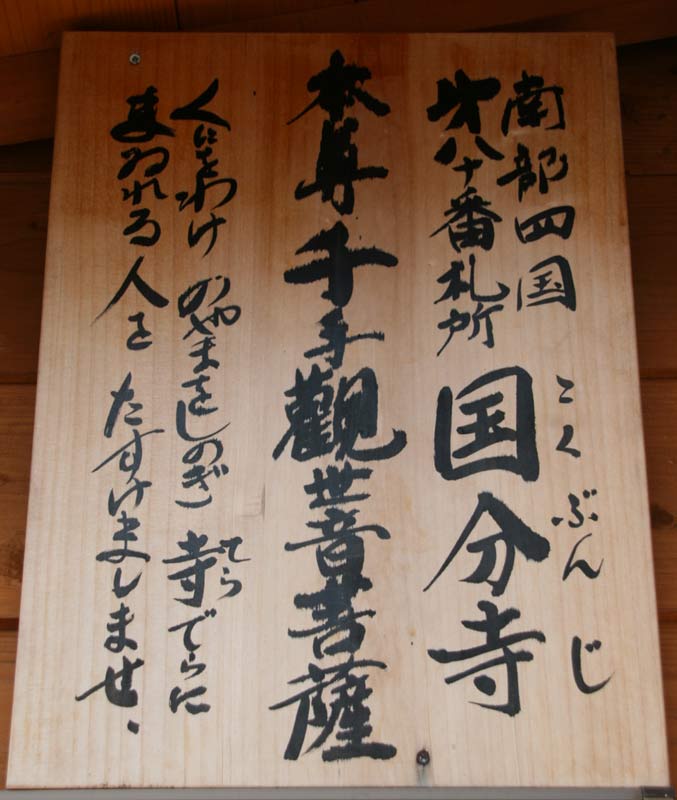 南部四国
第八十番札所
国分寺
こくぶんじ
本尊千手觀世音菩薩
くにをわけのやまをしのぎ寺でらに
てら
まゐれる人をたすけましませ、